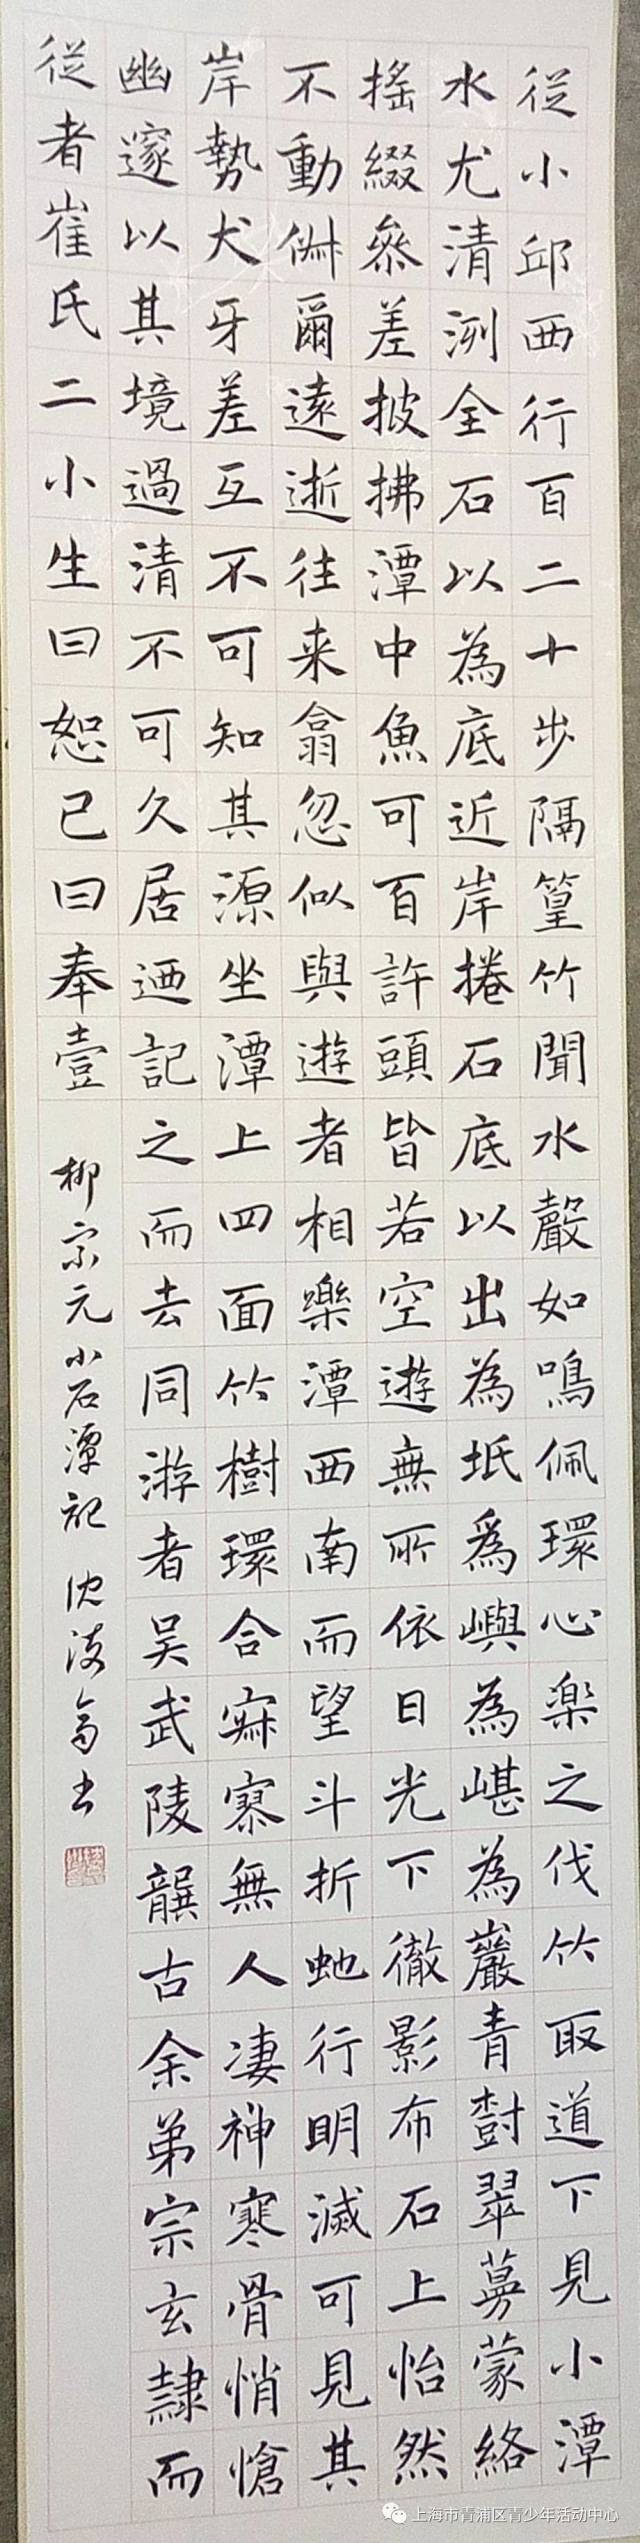 從小邱西行百二十步隔篁竹聞水聲如鳴佩環心楽之伐竹取道下見小潭
水尤清洌全石以為底近岸捲石底以出為坻爲嶼為嵁為巖青樹翠蔓蒙絡
搖綴參差披拂潭中魚可百許頭皆若空遊無所依日光下徹影布石上怡然
不動俶爾遠逝往来翕忽似與遊者相樂潭西南而望斗折虵行明滅可見其
岸勢犬牙差互不可知其源坐潭上四面竹樹環合寂寥無人凄神寒骨悄愴
幽邃以其境過清不可久居迺記之而去同游者吴武陵龔古余弟宗玄隸而
從者崔氏二小生曰恕己曰奉壹
柳宗元小石潭記 沈 书
上海市青浦区青少年活动中心